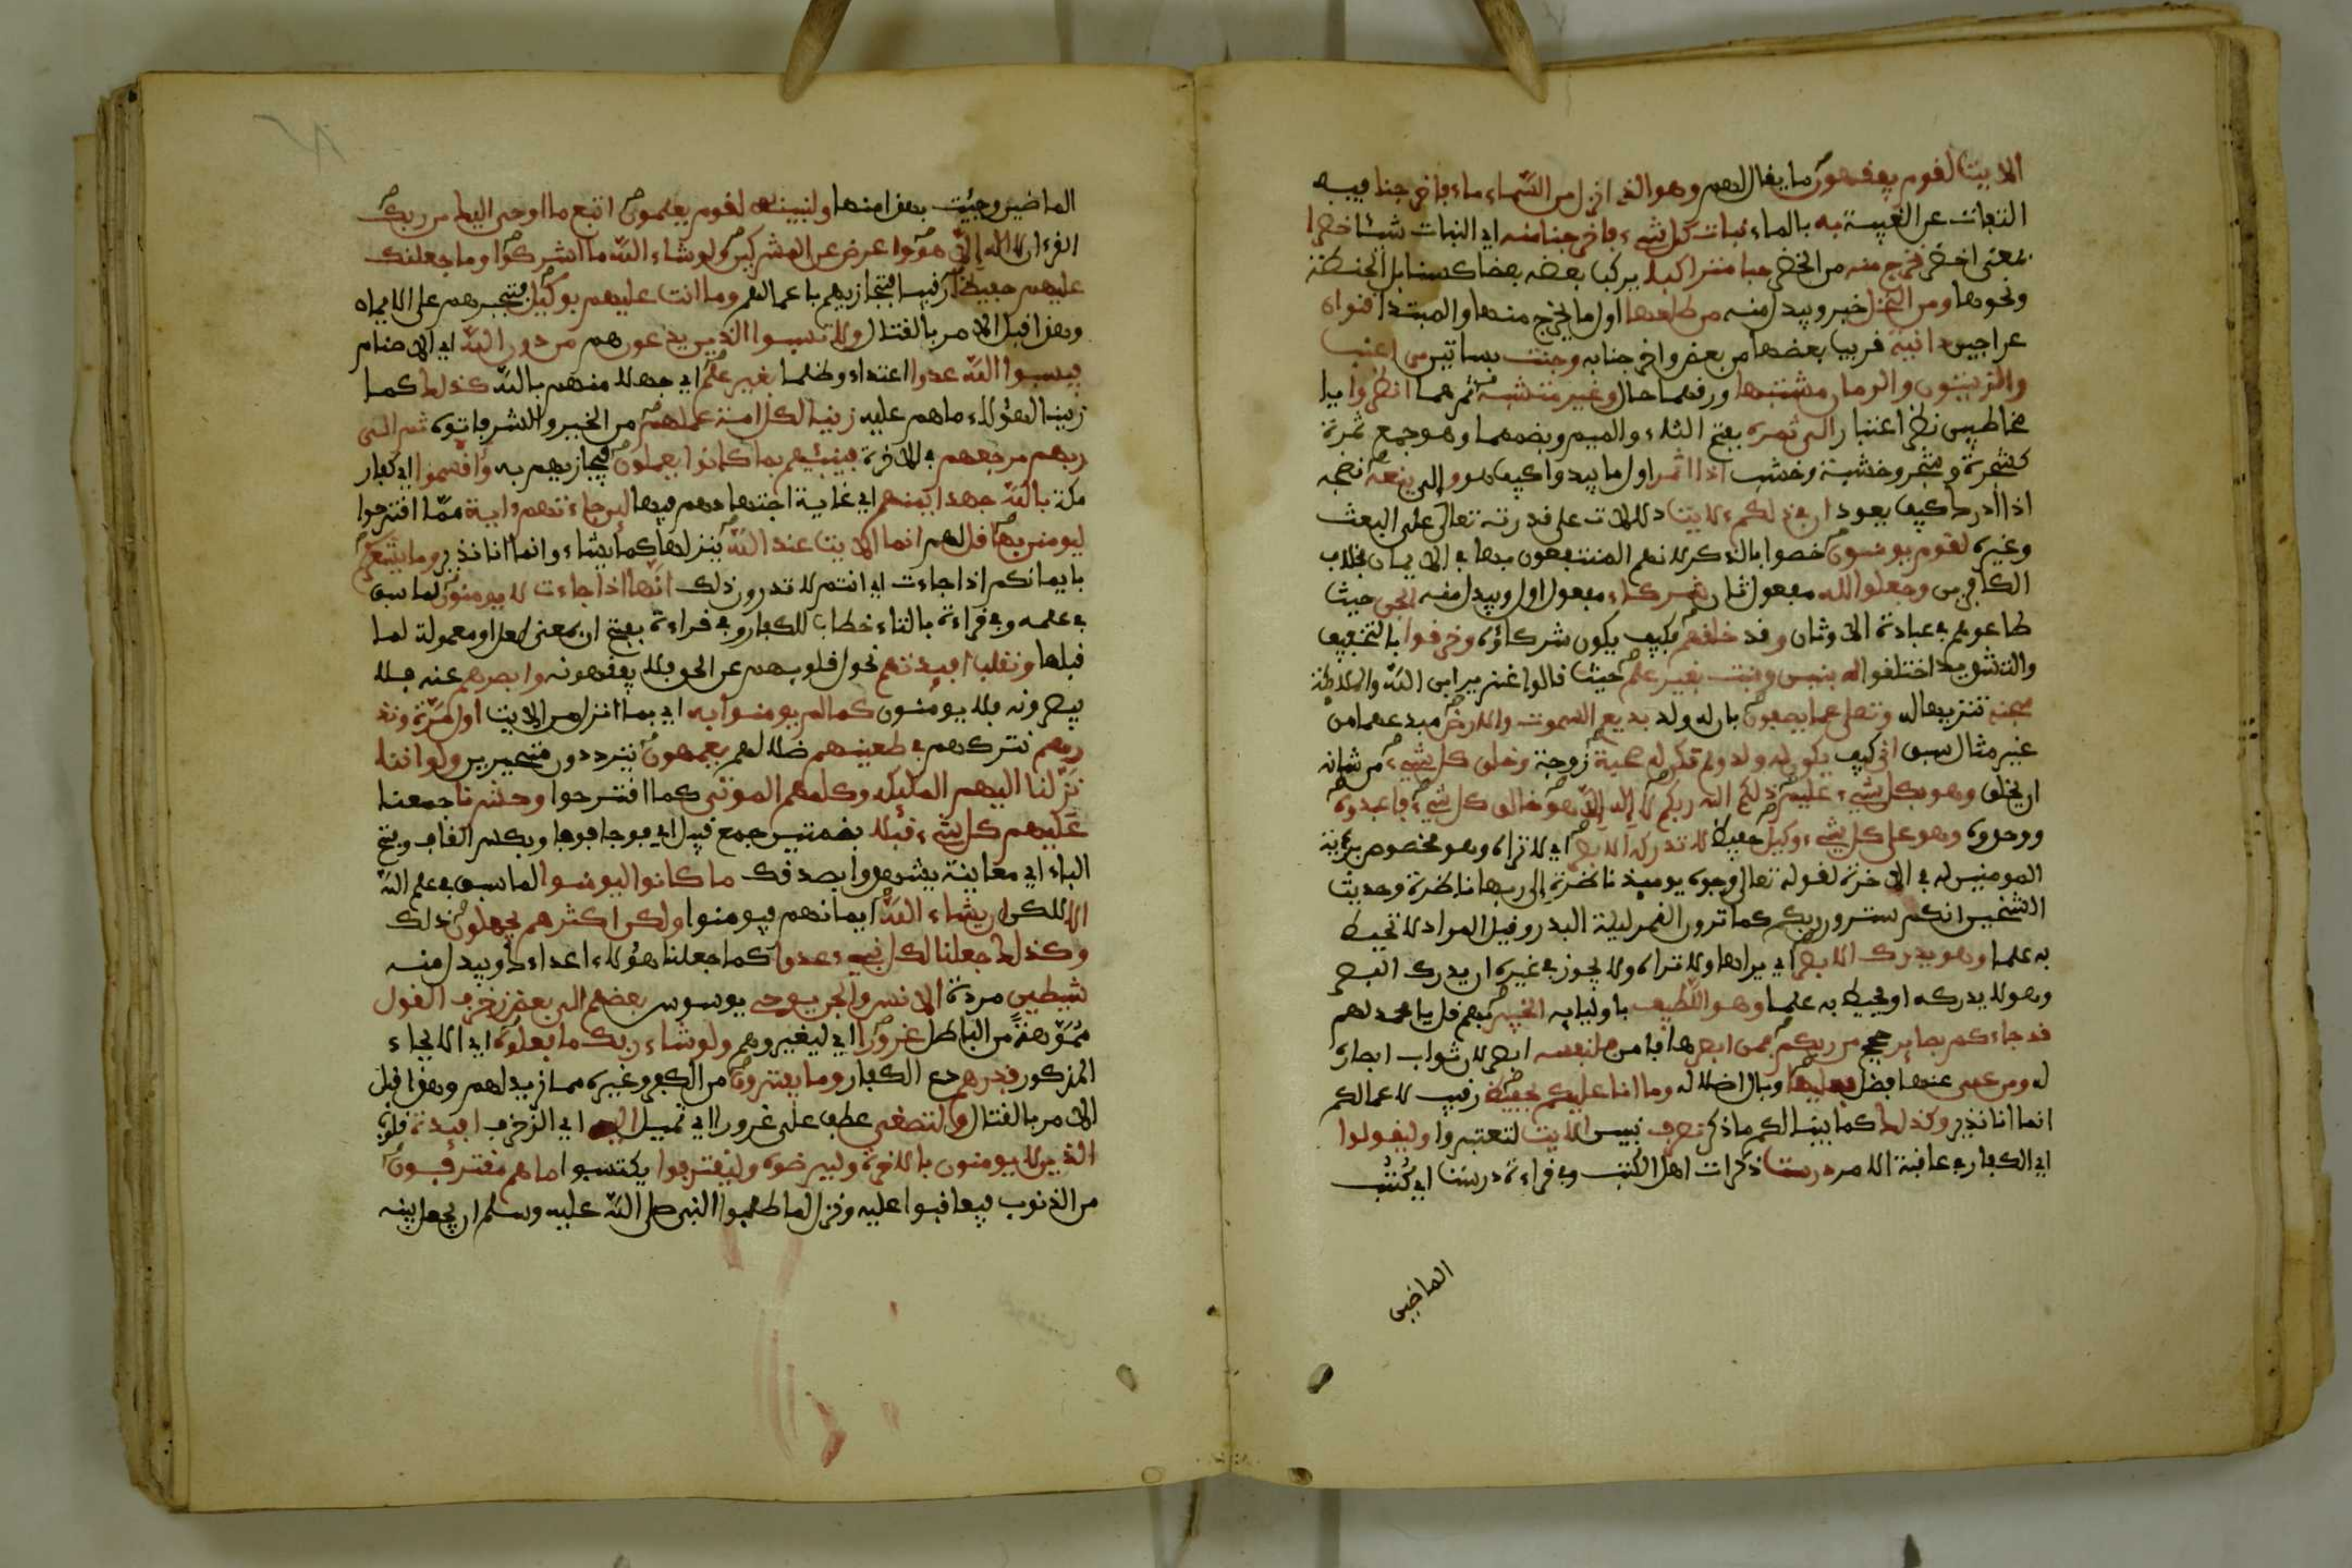 الايت لقوم يفقهون ما يقال لهم وهو الذي انزل من السماء ماء فاخرجنا فيه
التفات عن الغيبة به بالماء نبات كل شيء فاخرجنا منه اي النبات شيئا خضرا
بمعنى اخضر نخرج منه من الخضر حبا متراكبا يركب بعضه بعضا كسنابل الحنطة
ونحوها ومن النخل خبر ويبدل منه من طلعها اول ما يخرج منها والمبتدا قنوان
عراجين دانية قريب بعضها من بعض واخرجنا به وجنت بساتين من اعنب
والزيتون والرمان مشتبها ورقهما حال وغير متشبه ثمرهما انظروا يا
مخاطبين نظر اعتبار الى ثمره بفتح الثاء والميم وبضمهما وهو جمع ثمرة
كشجرة وشجر وخشبة وخشب اذا اثمر اول ما يبدوا كيف هو وإلى ينعه نضجه
اذا ادرك كيف يعود ان في ذلكم لايت دلالات على قدرته تعالى على البعث
وغيره لقوم يومنون خصوا بالذكر لانهم المنتفعون بها في الايمان بخلاف
الكافرين وجعلوا لله مفعول ثان شركاء مفعول اول ويبدل منه الجن حيث
طاعوهم في عبادة الاوثان وقد خلقهم فكيف يكون شركاؤه وخرقوا بالتخفيف
والتشديد اختلفوا له بنين وبنت بغير علم حيث قالوا عزير ابن الله والملائكة
سبحنه تنزيها له وتعلى عما يصفون بان له ولد بديع السموت والارض مبدعهما من
غير مثال سبق انى كيف يكون له ولد ولم تكن له صحبة زوجة وخلق كل شيء من شانه
ان يخلق وهو بكل شيء عليم ذلكم الله ربكم لا إله إلا هو خالق كل شيء فاعبدوه
ووحدوه وهو على كل شيء وكيل حفيظ لا تدركه الابصر اي لا تراه وهو مخصوص برؤية
المومنين له في الاخرة لقوله تعالى وجوه يوميذ ناضرة إلى ربها ناظرة وحديث
الشيخين انكم سترون ربكم كما ترون القمر ليلة البدر وقيل المراد لا تحيط
به علما وهو يدرك الابصر اي يراها ولا تراه ولا يجوز في غيره ان يدرك البصر
وهو لا يدركه او يحيط به علما وهو اللطيف باوليايه الخبير بهم قل يا محمد لهم
قد جاءكم بصاير حجج من ربكم فمن ابصر ها فامن فلنفسه ابصر لان ثواب ابصاره
له ومن عمي عنها فضل فعليها وبال اضلاله وما انا عليكم بحفيظ رقيب لاعمالكم
انما انا نذير وكذلك كما بينا لكم ما ذكر نصرف نبين الايت لتعتبروا وليقولوا
اي الكفار في عاقبة الامر درست ذكرات اهل الكتب وفي قراءة درست اي كتب
الماضين
الماضين وجئت بهذا منها ولنبينه لقوم يعلمون اتبع ما اوحي اليك من ربك
القرءان لا اله إلا هو واعرض عن المشركين ولو شاء الله ما اشركوا وما جعلنك
عليهم حفيظا رقيبا فتجازيهم باعمالهم وما انت عليهم بوكيل فتجبرهم على الايمان
وهذا قبل الامر بالقتال ولا تسبوا الذين يدعون هم من دون الله اي الاصنام
فيسبوا الله عدوا اعتداء وظلما بغير علم اي جهلا منهم بالله كذلك كما
زينا لهؤلاء ماهم عليه زينا لكل امة عملهم من الخير والشر فاتوه ثم الى
ربهم مرجعهم في الاخرة فينبيهم بما كانوا يعملون فيجازيهم به واقسموا اي كفار
مكة بالله جهد ايمنهم اي غاية اجتهادهم فيها لين جاءتهم ءاية مما اقترحوا
ليومنن بها قل لهم انما الايت عند الله ينزلها كما يشاء وانما انا نذير وما يشعركم
بايمانكم اذا جاءت اي انتم لا تدرون ذلك انها اذا جاءت لا يومنون لما سبق
في علمه وفي قراءة بالتاء خطاب للكفار وفي قراءة بفتح ان بمعنى لعل او معمولة لما
قبلها ونقلب افيدتهم نحول قلوبهم عن الحق فلا يفقهونه وابصرهم عنه فلا
يبصرونه فلا يومنون كما لم يومنوا به اي بما انزل من الايت اول مرة ونذ
رهم نتركهم في طغينهم ضلالهم يعمهون يترددون متحيرين ولو اننا
نزلنا اليهم المليكة وكلمهم الموتى كما اقترحوا وحشرنا جمعنا
عليهم كل شيء قبلا بضمتين جمع قبيل اي فوجا فوجا وبكسر القاف وفتح
الباء اي معاينة يشهدوا بصدقك ما كانوا ليومنوا لما سبق في علم الله
الا لكن ان يشاء الله ايمانهم فيومنوا ولكن اكثرهم يجهلون ذلك
وكذلك جعلنا لكل نبيء عدوا كما جعلنا هؤلاء اعداءك ويبدل منه
شيطين مردة الانس والجن يوحي يوسوس بعضهم الى بعض زخرف القول
مموهه من الباطل غرورا اي ليغيروهم ولو شاء ربك ما فعلوه اي الايحاء
المذكور فذرهم دع الكفار وما يفترون من الكفر وغيره مما زين لهم وهذا قبل
الامر بالقتال ولتصغى عطف على غرورا اي تميل اليه اي الزخرف افيدة قلوب
الذين لا يومنون بالاخرة وليرضوه وليقترفوا يكتسبوا ما هم مقترفون
من الذنوب فيعاقبوا عليه ونزل لما طلبوا النبي صلى الله عليه وسلم ان يجعل بينه